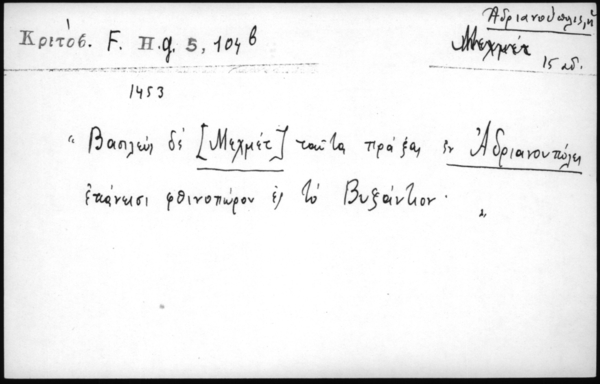 Κριτόβ. F. H.g. 5, 104 b
Ἀδριανούπολις, ἡ
Μεχμέτ
15 αἰ.
1453
"Βασιλεὺς δὲ [Μεχμέτ] ταῦτα πράξας ἐν Ἀδριανουπόλει
ἐπάνεισι φθινοπώρου ἐς τὸ Βυζάντιον. "